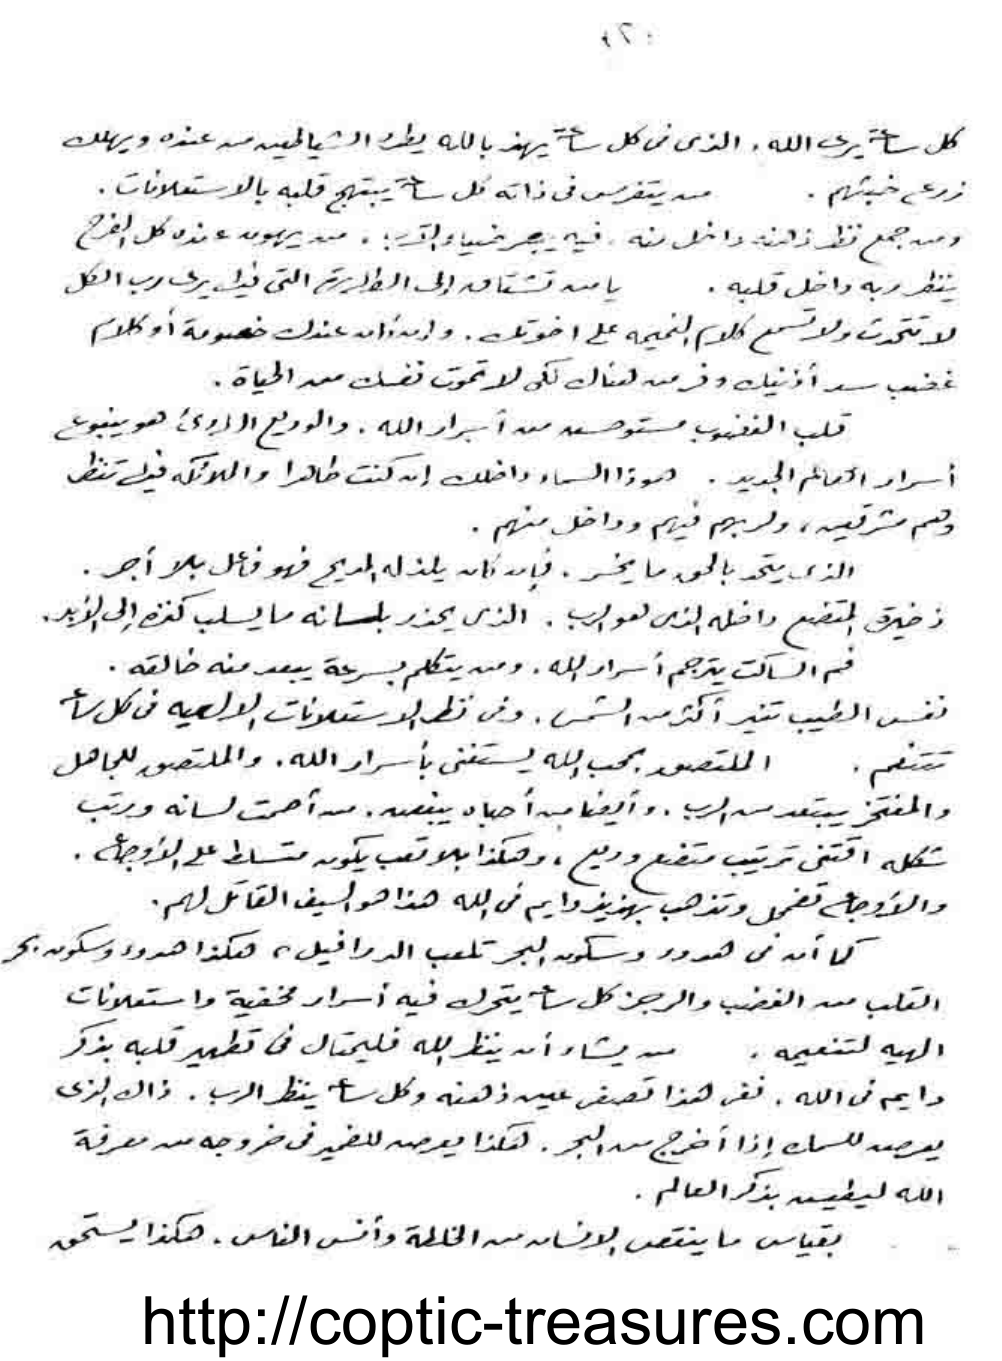 كل ساعة يرى الله . الذى فى كل ساعة يهذ بالله يطرد الشياطين من عنده ويهلك
زرع خبثهم . من يتفرس فى ذاته كل ساعة يبتهج قلبه بالاستعلانات .
ومن جمع نظر ذهنه داخل منه . فيه يبصر ضياء الرب . من يهون عنده كل الفرح
ينظر ربه داخل قلبه . يا من تشتاق إلى الطهارة التى فيها يرى رب الكل
لا تتحدث ولا تسمع كلام النميمه على اخوتك . وإن كان عندك خصومة أو كلام
غضب سد أذنيك وفر من هناك لكى لا تموت نفسك من الحياة .
قلب الغضوب مستوحش من أسرار الله . والوديع الهادئ هو ينبوع
أسرار العالم الجديد . هوذا السماء داخلك إن كنت طاهرا والملائكه فيك تنظر
وهم مشرقين ، وربهم فيهم وداخل منهم .
الذى يتحد بالحق ما يخسر . فإن كان يلذ له المديح فهو فاعل بلا أجر .
ذخيرة المتضع داخله الذى هو الرب . الذى يحذر بلسانه ما يسلب كنزه إلى الأبد .
فم الساكت يترجم أسرار الله . ومن يتكلم بسرعة يبعد منه خالقه .
نفس الطيب تنير أكثر من الشمس . وفى نظر الاستعلانات الالهيه فى كل ساعة
تتنعم . الملتصق بمحب الله يستغنى بأسرار الله . والملتصق للجاهل
والمفتخر يبتعد من الرب . وأيضا من أحباه يبغض . من أصمت لسانه ورتب
شكله اقتنى ترتيب متضع وديع ، وهكذا بلا تعب يكون متسلط على الأوجاع .
والأوجاع تضمحل وتذهب بهذيذ دايم فى الله هذا هو السيف القاتل لهم .
كما أن فى هدوء وسكون البحر تلعب الدرافيل ، هكذا هدوء وسكون بحر
القلب من الغضب والرجز كل ساعة يتحرك فيه أسرار مخفية واستعلانات
الهيه لتنعيمه . من يشاء أن ينظر الله فليحتال فى تطهير قلبه بذكر
دايم فى الله . نفس هذا تصفى عين ذهنه وكل ساعة ينظر الرب . ذاك الذى
يعرض للسمك إذا أخرج من البحر . هكذا يعرض للضمير فى خروجه من معرفة
الله ليطيش بذكر العالم .
بقياس ما ينقص الانسان من الخلطة وأنس الناس . هكذا يستحق
http://coptic-treasures.com